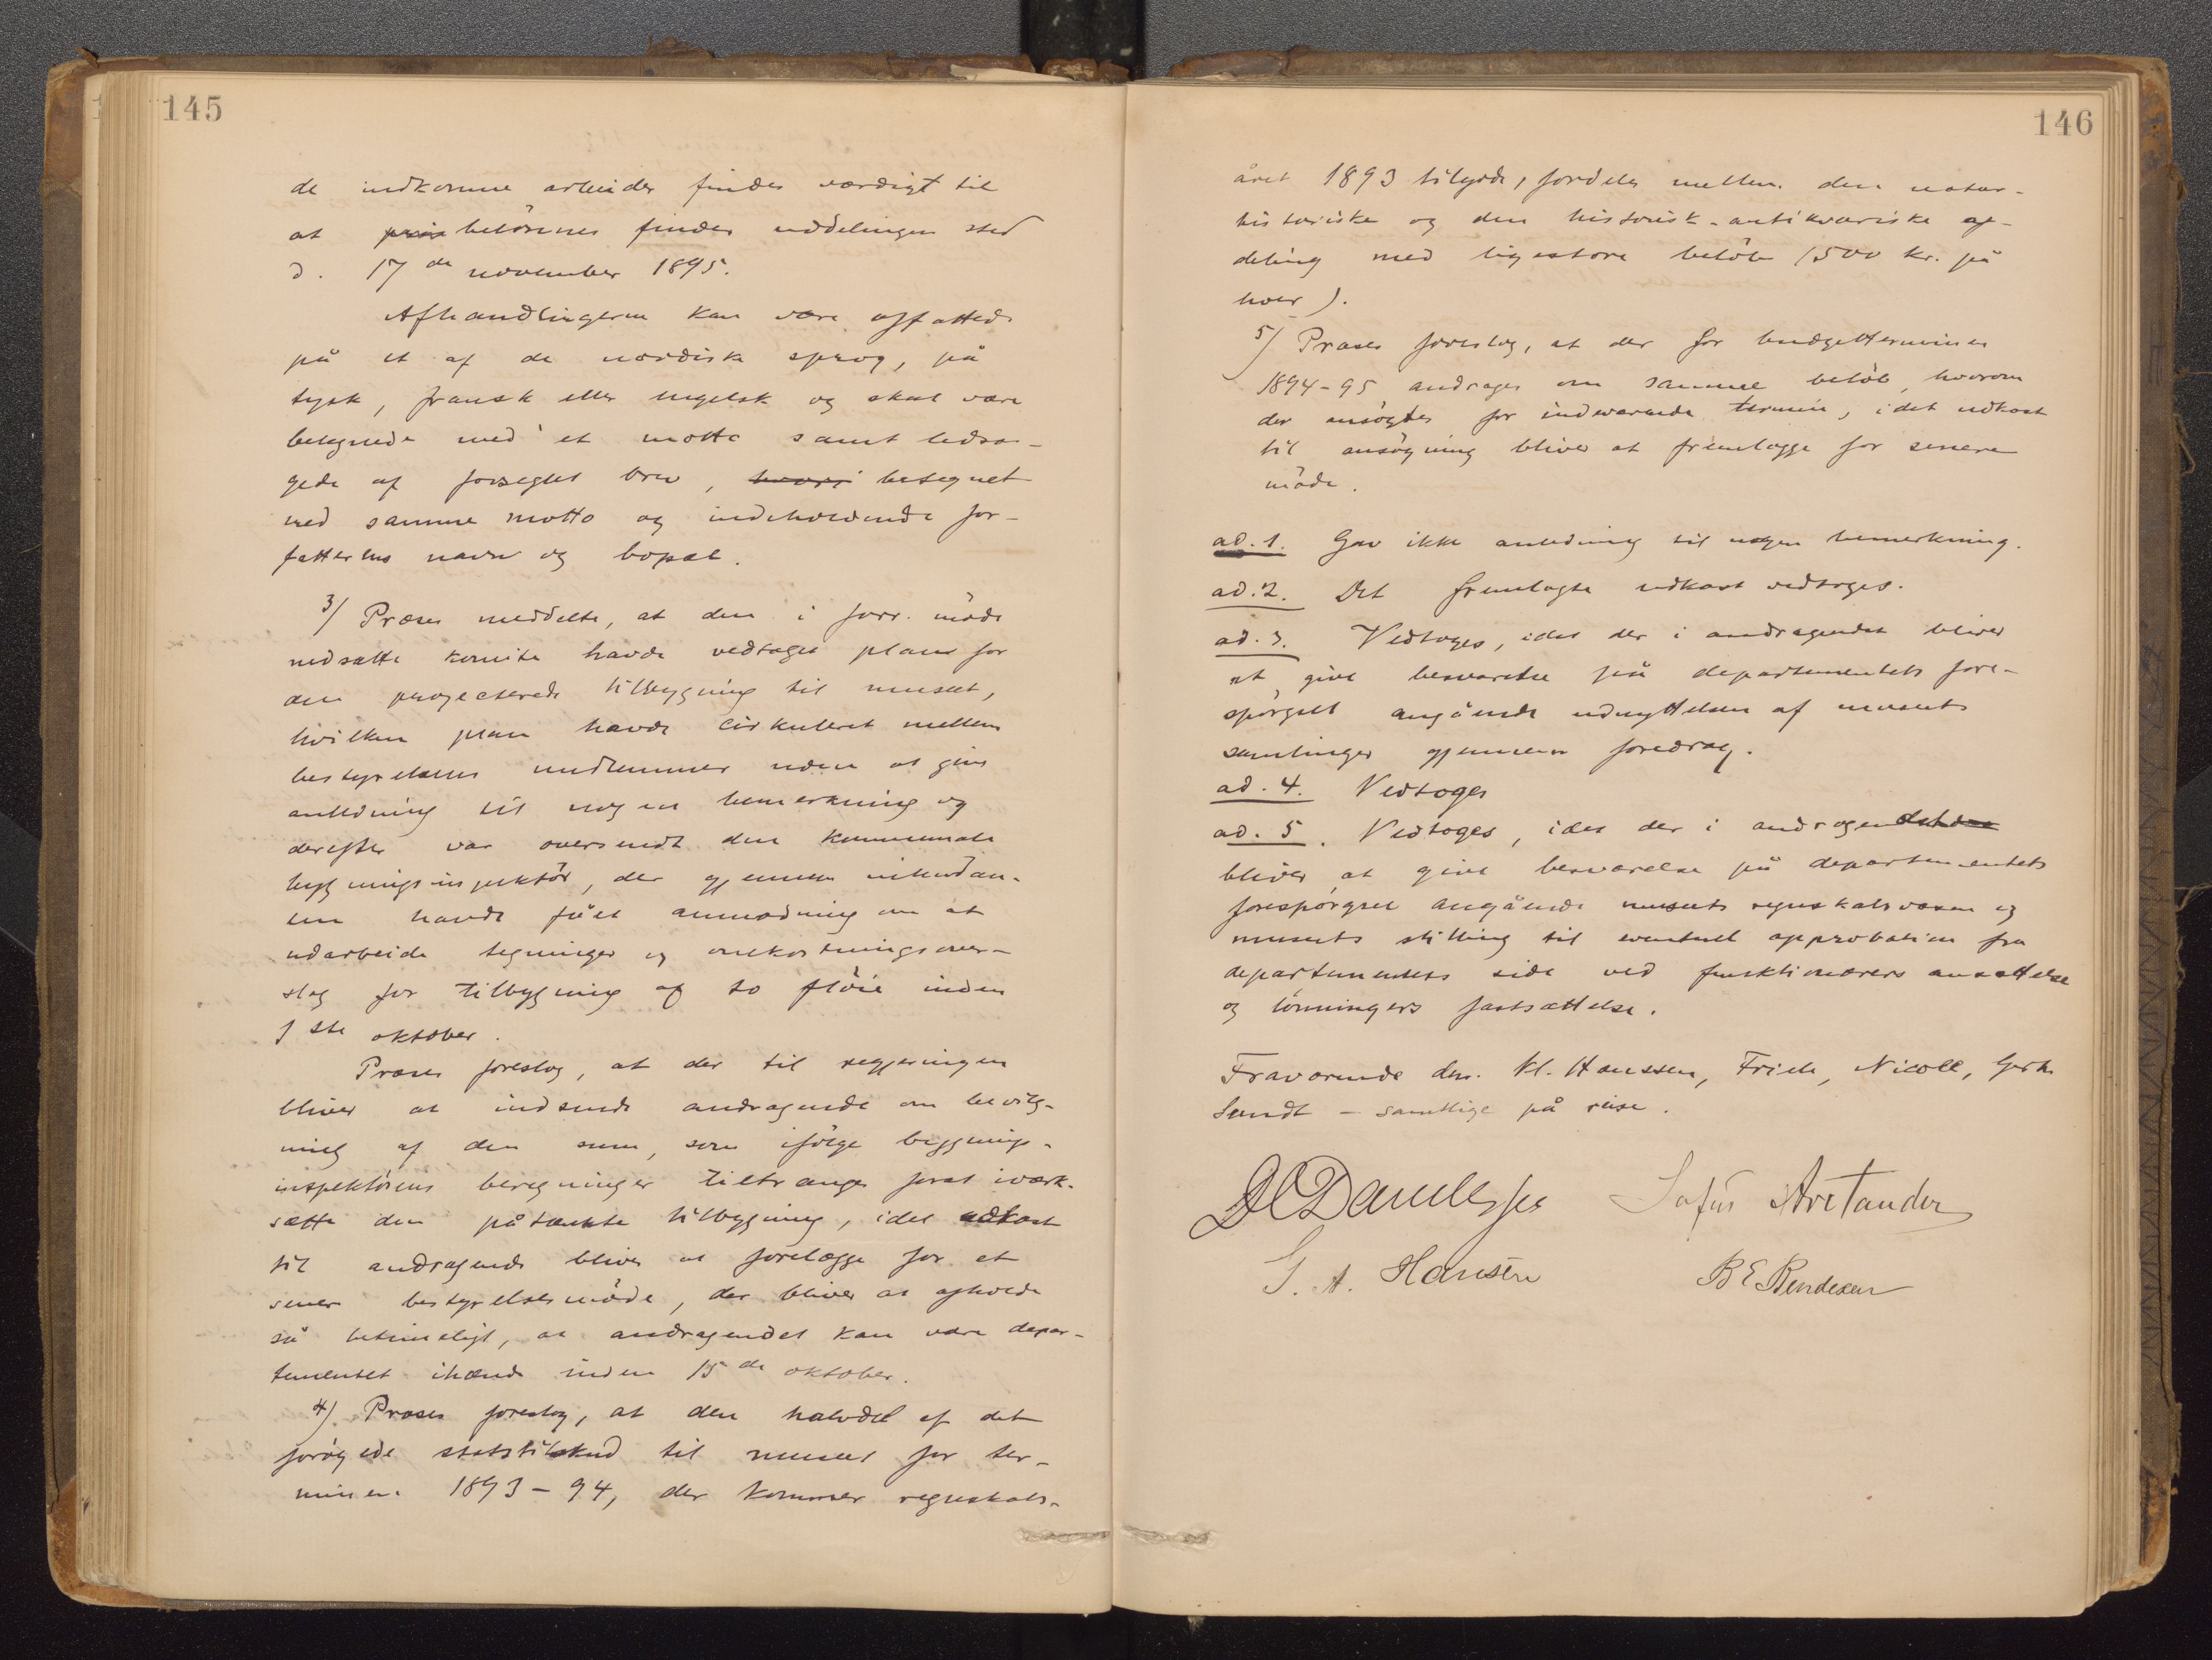 145
de indkomne arbeider findes værdigt til
at belönnes finder uddelingen sted
d. 17de november 1895.
Afhandlingerne kan være affattede
på et af de nordiske sprog, på
tysk, fransk eller engelsk og skal være
betegnede med et motto samt ledsa-
gede af forseglet brev, hvori betegnet
med samme motto og indeholdende for-
fatterens navn og bopæl.
3/ Præses meddelte, at den i forr. möde
nedsatte komite havde vedtaget plan for
den projecterede tilbygning til museet,
hvilken plan havde cirkuleret mellem
bestyrelsens medlemmer uden at give
anledning til nogen bemerkning og
derefter var oversendt den kommunale
bygningsinspektör, der gjennem
havde fået anmodning om at
udarbeide tegninger og omkostningsover-
slag for tilbygning af to flöie inden
1ste oktober.
Præses foreslog, at der til regjeringen
bliver at indsende andragende om bevilg-
ning af den sum, som ifölge bygnings-
inspektörens beregninger tiltrænges forat iværk-
sætte den påtænkte tilbygning, idet udkast
til andragende bliver at forelægge for et
senere bestyrelsesmöde, der bliver at afholde
så betimeligt, at andragendet kan være depar-
tementet ihænde inden 15de oktober.
4/ Præses foreslog, at den halvdel af det
forögede statstilskud til museet for ter-
minen 1893-94, der kommer regnskabs-
146
året 1893 tilgode, fordeles mellem den natur-
historiske og den historisk-antikvariske af-
deling med ligestore belöb (500 kr. på
hver).
5/ Præses foreslog, at der for budgetterminen
1894-95 andrages om samme belöb, hvorom
der ansögtes for indeværende termin, idet udkast
til ansögning bliver at fremlægge for senere
möde.
ad. 1. Gav ikke anledning til nogen bemerkning.
ad. 2. Det fremlagte udkast vedtoges.
ad. 3. Vedtoges, idet der i andragendet bliver
at give besvarelse på departementets fore-
spörgsel angående udnyttelsen af museets
samlinger gjennem foredrag.
ad. 4. Vedtoges
ad. 5. Vedtoges, idet der i andragendet
bliver at give besvarelse på departementets
forespörgsel angående museets regnskabsvæsen og
museets stilling til eventuel approbation fra
departementets side ved funktionærers ansættelse
og lönningers fastsættelse.
Fraværende dhr. Kl. Hanssen, Friele, Nicoll, Gerh.
Sundt - samtlige på reise.
DCDanielssen Sofus Arctander
G. A. Hansen B E Bendixen